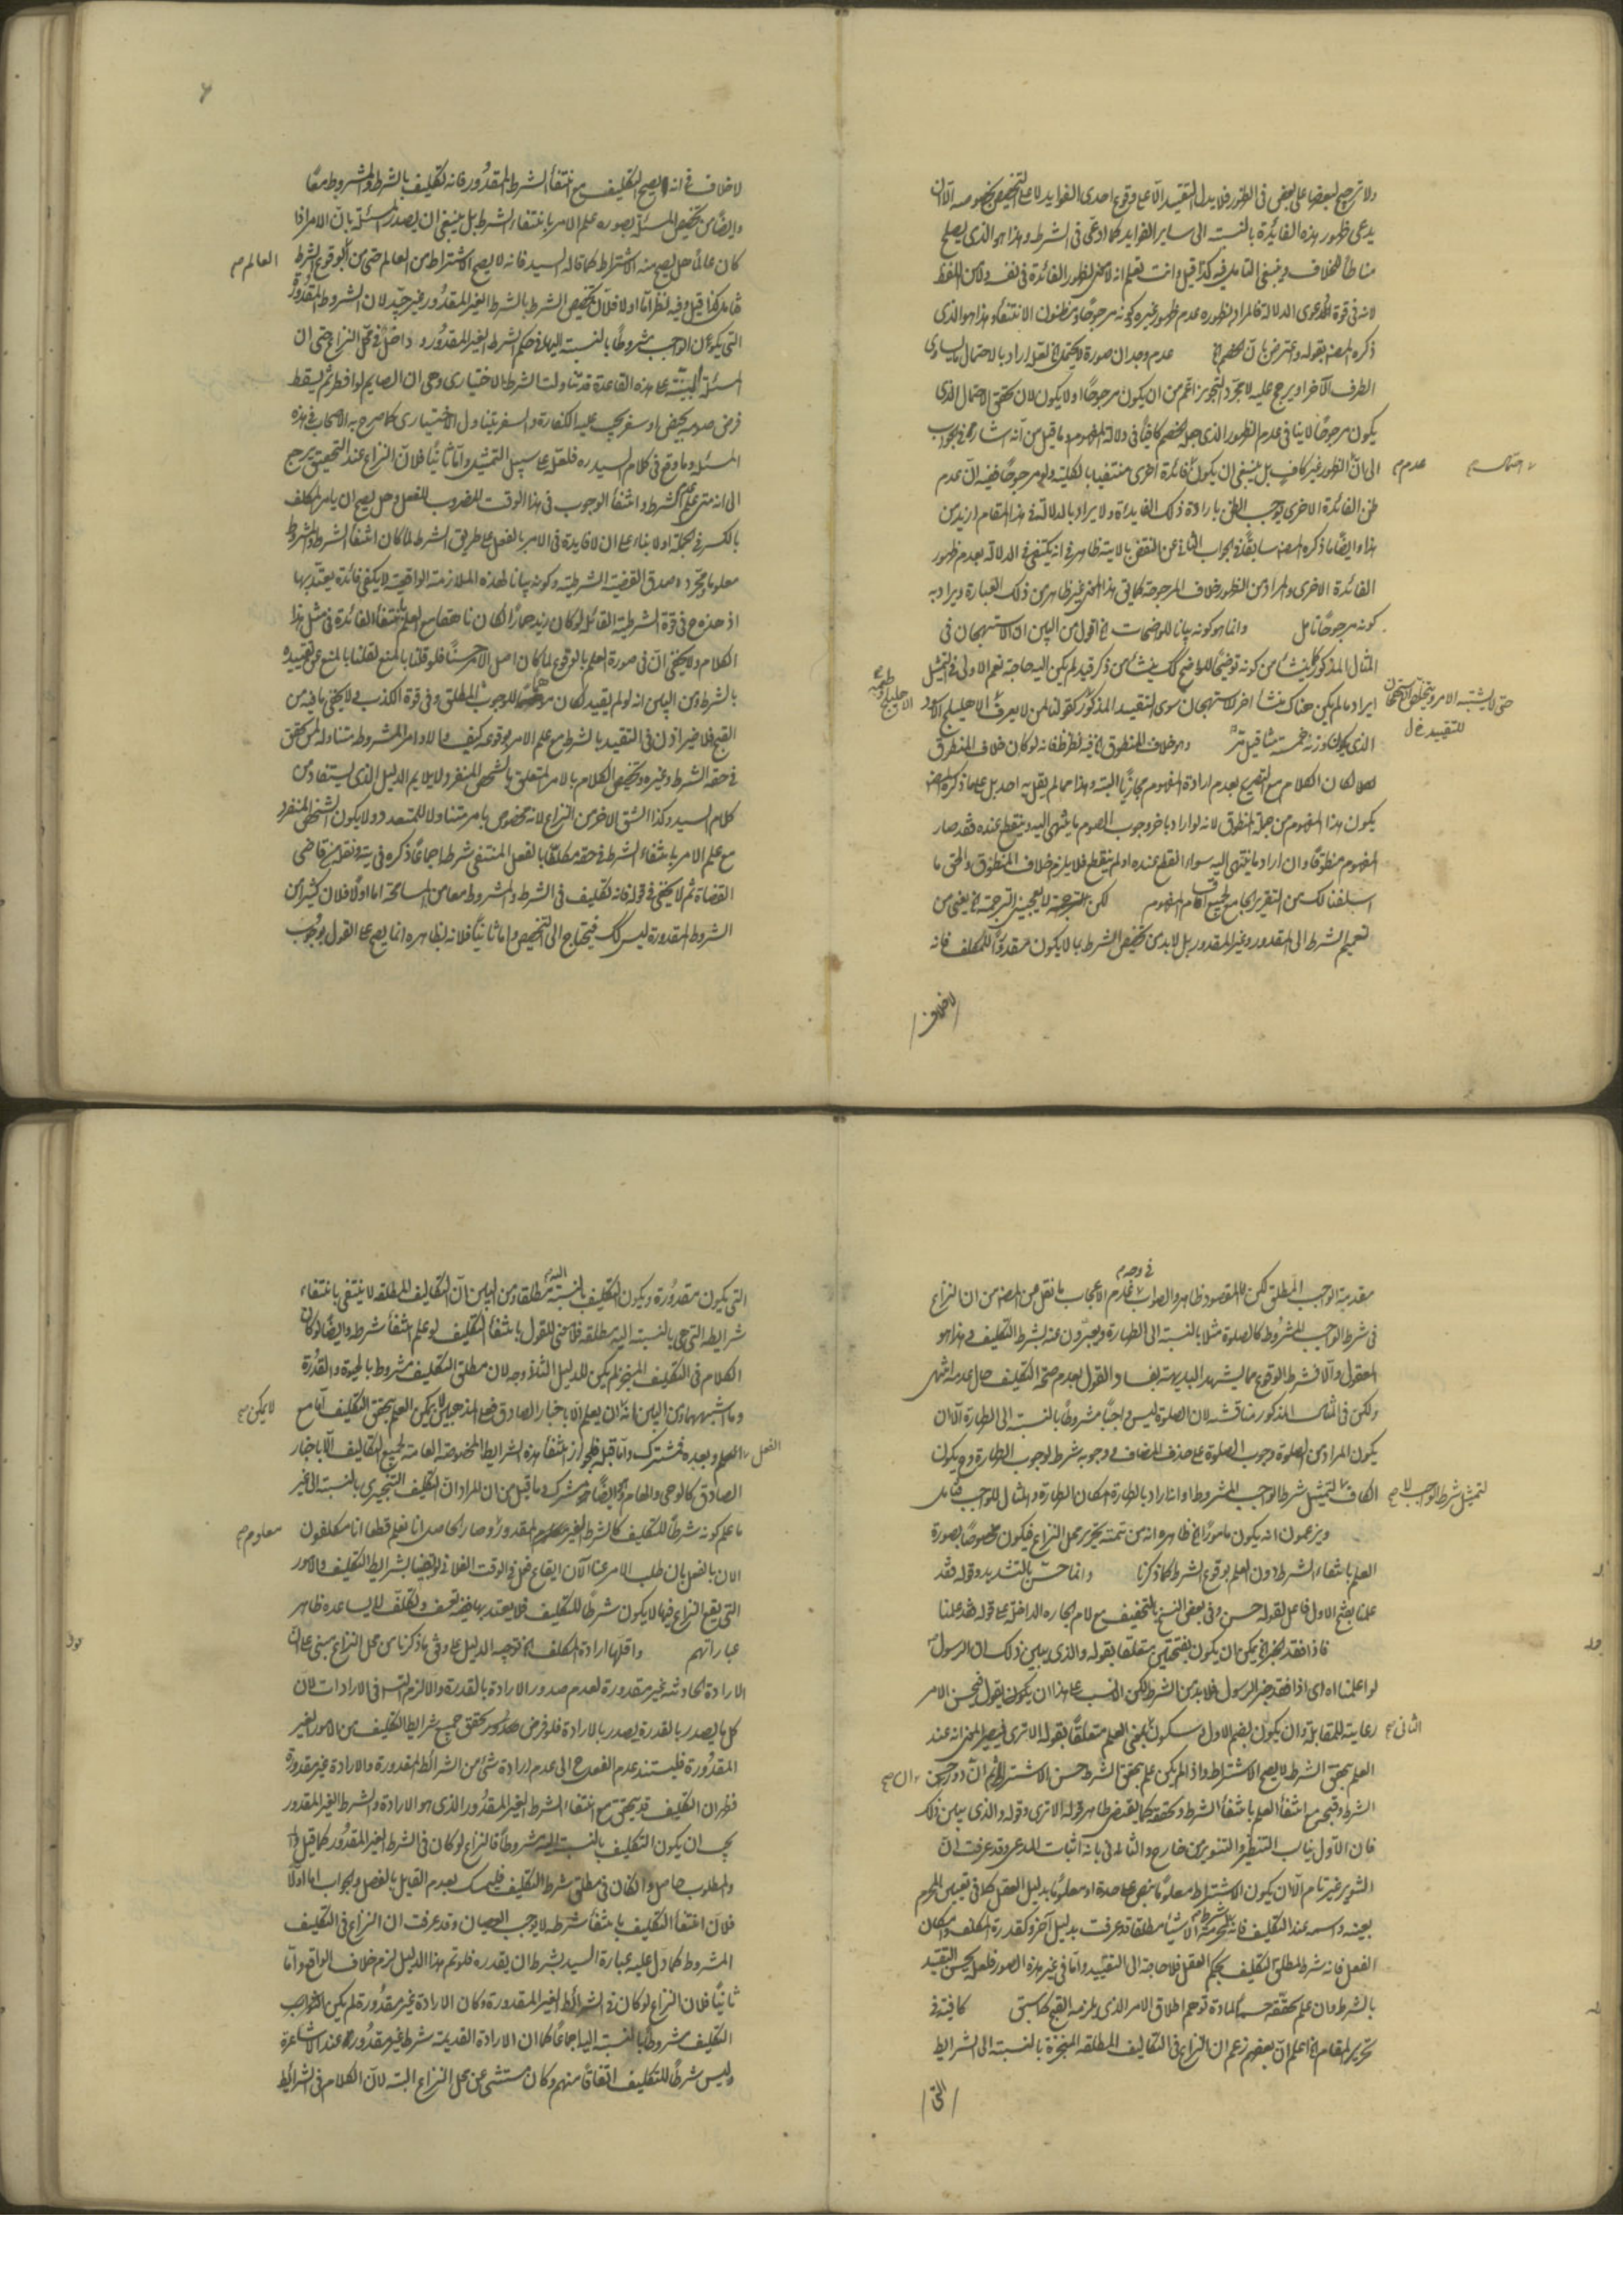 ولا ترجيح لبعضها على بعض في الظهور فلا يدل التقييد الا على وقوع احدى الفوايد لا على التخصيص بخصوصه الا ان
يدعى ظهور هذه الفائدة بالنسبة الى ساير الفوايد كما ادعى في الشرط وهذا هو الذي يصلح
مناطا للخلاف وينبغي التامل فيه كذا قيل وانت تعلم انه لا معنى لظهور الفائدة في نفسه ولا من اللفظ
لانه في قوة دعوى الدلالة فالمراد بظهوره عدم ظهور غيره وكونه مرجوحا ومظنون الانتفاء وهذا هو الذي
ذكره المصنف بقوله واعترض بان الخصم الخ عدم وجدان صورة لا يحتمل الخ لعله اراد بالاحتمال ما يساوى
الطرف الآخر او يرجح عليه لا مجرد التجويز اعم من ان يكون مرجوحا او لا يكون لان تحقق الاحتمال الذي
يكون مرجوحا لا ينافي عدم الظهور الذي جعله الخصم كافيا في دلالة المفهوم وما قيل من انه اشارة في الجواب
الى ان الظهور غير كاف بل ينبغي ان يكون فائدة اخرى منتفيا بالكلية ولو مرجوحا ففيه ان عدم
عدم
ظن الفائدة الاخرى يوجب الظن بارادة ذلك الفايدة ولا يراد بالدلالة في هذا المقام ازيد من
هذا وايضا ما ذكره المصنف سابقا في الجواب الثاني عن النقض بالاية ظاهر في انه يكتفي في الدلالة بعدم ظهور
الفائدة الاخرى والمراد من الظهور خلاف المرجوحية كما في هذا المعنى غير ظاهر من ذلك العبارة ويراد به
كونه مرجوحا تامل وانما هو كونه بيانا للوضحات الخ اقول من البين ان الاستهجان في
المثال المذكور كما ينشأ من كونه توضيحا للواضح كذلك ينشأ من ذكر قيد لم يكن اليه حاجة نعم الاولى في التمثيل
ايراد ما لم يكن هناك منشأ اخر للاستهجان سوى التقييد المذكور كقولنا لمن لا يعرف الاهليلج الاسود
حتى لا يشتبه الامر
للتقييد
الذي يكون وزنه خمسة مثاقيل وهو خلاف المنطوق الخ فيه نظر ظ فانه لو كان خلاف المنطوق
لكان الكلام مع التصريح بعدم ارادة المفهوم مجازيا البتة وهذا مما لم يقل به احد بل على ما ذكره المصنف
يكون هذا المفهوم من جملة المنطوق لانه لو اراد باخر وجوب الصوم ما ينتهى اليه وينقطع عنده فقد صار
المفهوم منطوقا وان اراد ما ينتهى اليه سواء انقطع عنده او لم ينقطع فلا يلزم خلاف المنطوق والحق ما
اسلفنا لك من التقرير الجامع لجميع اقسام المفهوم لكن الترجمة لا يعجبني الترجمة الخ يعنى من
تعميم الشرط الى المقدور وغير المقدور بل لابد من تخصيص الشرط بما لا يكون مقدورا للمكلف فانه
لا خلاف
لا خلاف في انه لا يصح التكليف مع انتفاء الشرط المقدور فانه تكليف بالشرط والمشروط معا
وايضا من تخصيص المسئلة بصورة علم الامر بانتفاء الشرط بل ينبغي ان يصدر المسئلة بان الامر اذا
كان عالما هل يصح منه الاشتراط كما قاله السيد فانه لا يصح الاشتراط من العالم حتى من بوقوع الشرط
العالم
تامل كذا قيل وفيه نظر اما اولا فلان تخصيص الشرط بالشرط الغير المقدور غير جيد لان الشروط المقدورة
التي يكون الواجب مشروطا بالنسبة اليها في حكم الشرط الغير المقدور وداخل في محل النزاع حتى ان
المسئلة المبتنية على هذه القاعدة قد تناولت الشرط الاختيارى وهى ان الصايم لو افطر ثم يسقط
فرض صومه بحيض او سفر يجب عليه الكفارة والسفر يتناول الاختيارى كما صرح به الاصحاب في هذه
المسئلة وما وقع في كلام السيد ره فلعله على سبيل التمثيل واما ثانيا فلان النزاع عند التحقيق يرجع
الى انه متى علم الشرط وانتفاء الوجوب في هذا الوقت المضروب للفعل وهل يصح ان يامر المكلف
بالكسر في الجملة اولا بناء على ان لا فايدة في الامر بالفعل على طريق الشرط لما كان انتفاء الشرط والمشروط
معلوما ومجرد صدق القضية الشرطية وكونه بيانا لهذه الملازمة الواقعية لا يكفي فائدة يعتد بها
اذ هذه ح في قوة الشرطية القائلة لو كان زيد حمارا لكان ناهقا مع العلم بانتفاء الفائدة في مثل هذا
الكلام ولا يخفى ان في صورة العلم بالوقوع لما كان اصل الامر حسنا فلو قلنا بالمنع لقلنا بالمنع عن تقييده
بالشرط ومن البين انه لو لم يقيد لكان موهما للوجوب المطلق وفي قوة الكذب ولا يخفى ما فيه من
القبح فلا ضير اذن في التقييد بالشرط مع علم الامر بوقوعه كيف والاوامر المشروطة متناولة لمن تحقق
في حقه الشرط وغيره وتخصيص الكلام بالامر المتعلق بالشخص المنفرد لا يلايم الدليل الذي يستفاد من
كلام السيد وكذا الشق الاخر من النزاع لانه مخصوص بامر متناولا للمتعدد ولا يكون الشخص المنفرد
مع علم الامر بانتفاء الشرط في حقه مكلفا بالفعل المنتفى شرطه اجماعا ذكره في يه ونقله عن قاضى
القضاة ثم لا يخفى في قوله فانه تكليف في الشرط والمشروط معا من المسامحة اما اولا فلان كثيرا من
الشروط المقدورة ليس كذلك فيحتاج الى التخصيص واما ثانيا فلانه بظاهره انما يصح على القول بوجوب
مقدمة الواجب المطلق لكن المقصود ظاهر والصواب عدم الايجاب ما نقل عن المصنف من ان النزاع
في وجه
في شرط الواجب المشروط كالصلوة مثلا بالنسبة الى الطهارة ويعبرون عنه بشرط التكليف وهذا هو
المعقول والا فشرط الوقوع مما يشهد البديهة بفساد القول بعدم صحة التكليف حال عدمه انتهى
ولكن في المثال المذكور مناقشة لان الصلوة ليس واجبا مشروطا بالنسبة الى الطهارة الا ان
يكون المراد من الصلوة وجوب الصلوة على حذف المضاف فوجوبه شرط لوجوب الطهارة وح يكون
الكاف لتمثيل شرط الواجب المشروط او انه اراد بالطهارة امكان الطهارة والمثال للواجب فتامل
لتمثيل شرط الواجب لا
ويزعمون انه يكون مامورا الخ ظاهره انه من تتمة تحرير محل النزاع فيكون مخصوصا بصورة
العلم بانتفاء الشرط دون العلم بوقوع الشرط كما ذكرنا وانما حسن بالتشديد وقوله فقد
علمنا بفتح الاول فاعل لقوله حسن وفي بعض النسخ بالتخفيف مع لام الجارة الداخلة على قوله فقد علمنا
فاذا فقد الخبر الخ يمكن ان يكون بفتحتين متعلقا بقوله والذي يبين ذلك ان الرسول
لو اعلمنا اه اى اذا فقد خبر الرسول فلابد من الشرط لكن الانسب على هذا ان يكون يقول فيحسن الامر
رعاية للمقابلة وان يكون بضم الاول وسكون بمعنى العلم متعلقا بقوله الا ترى فيصير المعنى انه عند
الثانى
العلم بتحقق الشرط لا يصح الاشتراط واذا لم يكن علم بتحقق الشرط حسن الاشتراط ثم ان دور حسن
الشرط وقبحه مع انتفاء العلم بانتفاء الشرط وتحققه كما يقتضى ظاهر قوله الا ترى وقوله والذي يبين ذلك
فان الاول يناسب التنظير والتنوير من خارج والثانى في بابه اثبات المدعى وقد عرفت ان
التنوير غير تام الا ان يكون الاشتراط معلوما بنص على حدة او معلوما بدليل العقل كما في تعيين المحرم
بعينه واسمه عند التكليف فانه شرط الاشياء مطلقا قد عرفت بدليل آخر وكقدرة المكلف وامكان
الفعل فانه شرط لمطلق التكليف بحكم العقل فلا حاجة الى التقييد واما في غير هذه الصور فلعل يحسن التقييد
بالشرط وان علم تحققه حسما لمادة توهم اطلاق الامر الذي يلزمه القبح كما سبق كافية في
تحرير المقام الخ اعلم ان بعضهم زعم ان النزاع في التكاليف المطلقة المنجزة بالنسبة الى الشرايط
التى
التي يكون مقدورة ويكون التكليف بالنسبة اليه مطلقا ومن البين ان التكاليف المطلقة لا ينتفى بانتفاء
شرايطه التي هى بالنسبة اليه مطلقة فلا معنى للقول بانتفاء التكليف لو علم انتفاء شرطه وايضا لو كان
الكلام في التكليف المنجز لم يكن للدليل الثالث وجه لان مطلق التكليف مشروط بالحيوة والقدرة
وما اشبههما ومن البين انه ان يعلم الا باخبار الصادق فعلى المذهبين لا يمكن العلم بتحقق التكليف اما مع
لا يمكن
الفعل وبعده فمشترك واما قبله فلجواز انتفاء هذه الشرايط المخصوصة العامة لجميع التكاليف الا باخبار
الفعل
الصادق كالوحى والهام وهو ايضا مشترك وما قيل من ان المراد ان التكليف التنجيزى بالنسبة الى غير
ما علم كونه شرطا للتكليف كالشرط الغير المقدور وصار الحاصل انا نعلم قطعا انا مكلفون
معلوم
الان بالفعل بان طلب الامر عنا الآن ايقاع فعل في الوقت الفلانى بشرايط التكليف والامور
التي يقع النزاع فيها لا يكون شرطا للتكليف فلا يعتد بها ففيه تعسف وتكلف لا يساعده ظاهر
عباراتهم واقلها ارادة المكلف الخ توجيه الدليل على وفق ما ذكرنا من محل النزاع مبنى على ان
الارادة الحادثة غير مقدورة لعدم صدور الارادة بالقدرة والا لزم التسلسل في الارادات لان
كل ما يصدر بالقدرة يصدر بالارادة فلو فرض تحقق جميع شرايط التكليف من الامور الغير
المقدورة فليستند عدم الفعل ح الى عدم ارادة شئ من الشرائط المقدورة والارادة غير مقدورة
فظهر ان التكليف قد يتحقق مع انتفاء الشرط الغير المقدور الذي هو الارادة والشرط الغير المقدور
يجب ان يكون التكليف بالنسبة اليه مشروطا فالنزاع لو كان في الشرط الغير المقدور كما قيل
والمطلوب حاصل وان كان في مطلق شرط التكليف فليتمسك بعدم القايل بالفصل والجواب اما اولا
فلان انتفاء التكليف بانتفاء شرطه لا يوجب العصيان وقد عرفت ان النزاع في التكليف
المشروط كما دل عليه عبارة السيد بشرط ان يقدره فلو تم هذا الدليل لزم خلاف الواقع واما
ثانيا فلان النزاع لو كان في الشرائط الغير المقدورة وكان الارادة غير مقدورة لم يكن
التكليف مشروطا بالنسبة اليها اجماعا كما ان الارادة القديمة شرط غير مقدور عند الاشاعرة
وليس شرطا للتكليف اتفاقا منهم وكان مستثنى عن محل النزاع البتة لان الكلام في الشرائط